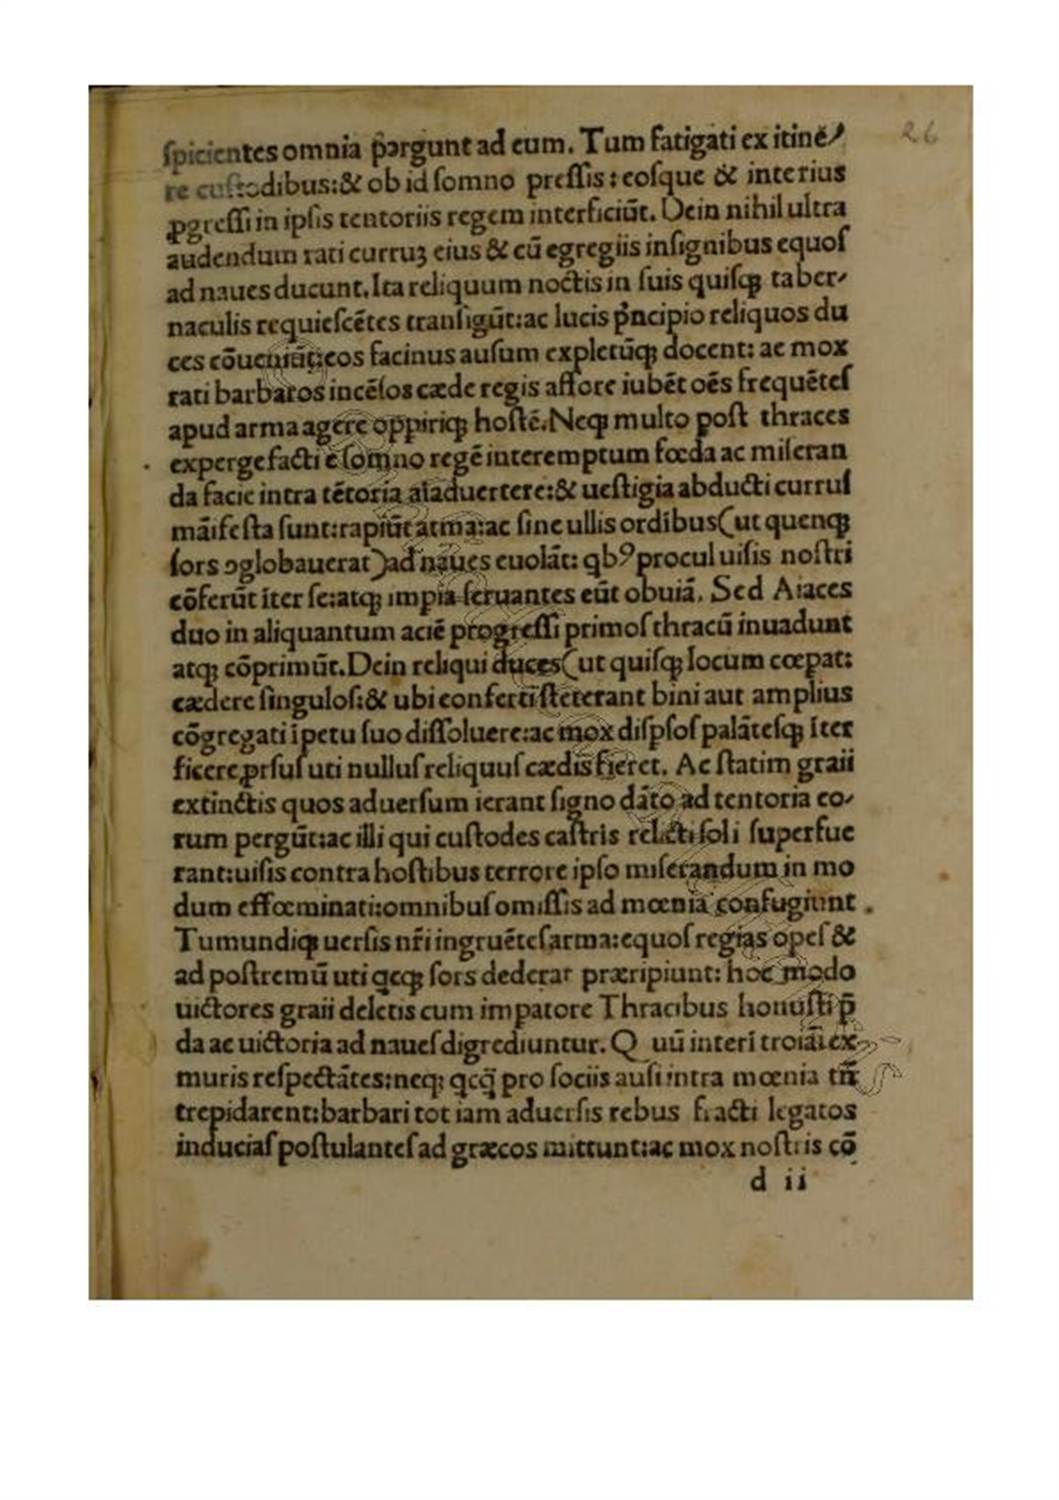 26
ſpicientes omnia ꝑgunt ad eum. Tum fatigati ex itine⸗
re cuſtodibus:& ob id ſomno preſſis: eoſque & interius
ꝓgreſſi in ipſis tentoriis regem interficiūt. Dein nihil ultra
audendum rati curruꝫ eius & cū egregiis inſignibus equoſ
ad naues ducunt. Ita reliquum noctis in ſuis quiſqꝫ taber⸗
naculis requieſcētes tranſigūt:ac lucis pͥncipio reliquos du
ces cōueniūt:eos facinus auſum expletūqꝫ docent: ac mox
rati barbaros incēſos cæde regis affore iubēt oēs frequēteſ
apud arma agere oppiriqꝫ hoſtē. Neqꝫ multo poſt thraces
expergefacti e ſomno regē interemptum fœda ac miſeran
da facie intra tētoria aīaduertere:& ueſtigia abducti curruſ
māifeſta ſunt:rapiūt arma:ac ſine ullis ordībus (ut quenqꝫ
ſors ꝯglobauerat) ad naues euolāt: qbꝰ procul uiſis noſtri
cōferūt īter ſe:atqꝫ impia ſeruantes eūt obuiā. Sed Aiaces
duo in aliquantum aciē progreſſi primoſ thracū inuadunt
atqꝫ cōprimūt. Dein reliqui duces (ut quiſqꝫ locum cœpat:
cædere ſinguloſ:& ubi conferti ſteterant bini aut amplius
cōgregati īpetu ſuo diſſoluere:ac mox diſpſoſ palāteſqꝫ īter
ficere ꝓrſuſ uti nulluſ reliquuſ cædis fieret. Ac ſtatim graii
extīnctis quos aduerſum ierant ſigno dato ad tentoria eo⸗
rum pergūt:ac illi qui cuſtodes caſtris relicti ſoli ſuperfue
rant:uiſis contra hoſtibus terrore ipſo miſerandum in mo
dum effœminati:omnibuſ omiſſis ad mœnia confugiunt.
Tum undiqꝫ uerſis nr̄i ingruēteſ arma:equoſ regias opeſ &
ad poſtremū uti qeqꝫ ſors dederat præripiunt: hoc modo
uictores graii deletis cum impatore Thracibus honuſti p̄
da ac uictoria ad naueſ digrediuntur. Q uū interī troiāi ex
muris reſpectātes:neqꝫ qcq̄ pro ſociis auſi intra mœnia tn̄
trepidarent:barbari tot iam aduerſis rebus fracti legatos
induciaſ poſtulanteſ ad græcos mittunt:ac mox noſtris cō
d ii